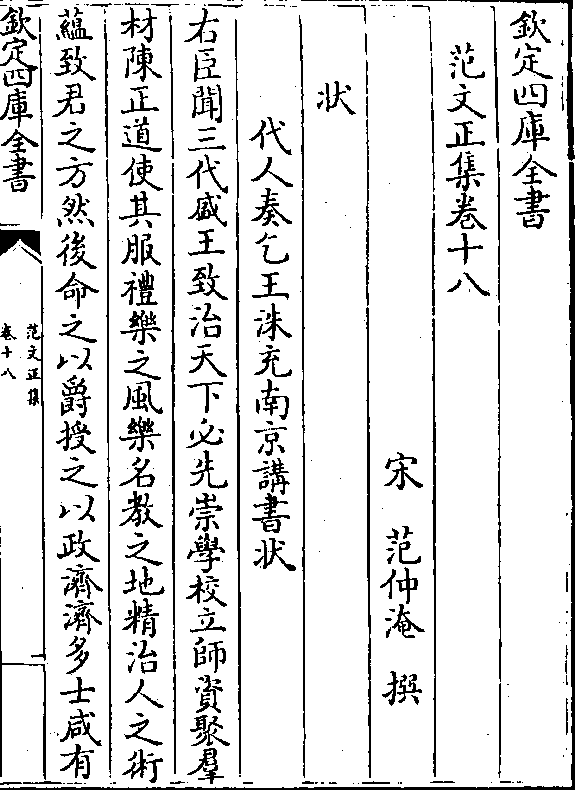 欽定四庫全書
范文正集卷十八
宋　范仲淹　撰
狀
代人奏乞王洙充南京講書狀
右臣聞三代盛王致治天下必先崇學校立師資聚羣
材陳正道使其服禮樂之風樂名教之地精治人之術
蘊致君之方然後命之以爵授之以政濟濟多士咸有
欽定四庫全書
范文正集
卷十八
一